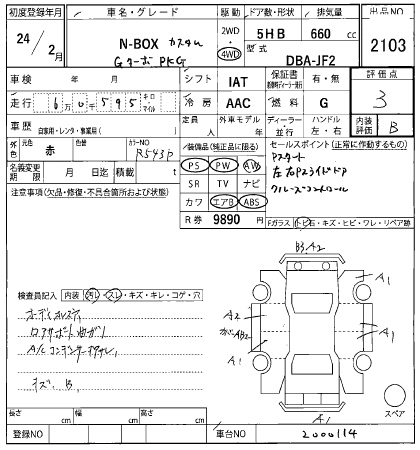 初度登録年月 車名・グレード 駆動 ドア数・形状 排気量 出品NO
24/2月 N-BOX カスタム 2WD 4WD 5HB 660cc 2103
Gターボ PKG 型式 DBA-JF2
車検 年 月 シフト IAT 保証書 有・無 評価点
走行 冷房 AAC 燃料 G 3
車歴 自家用・レンタ・事業用 定員 人 外車モデル 年 ディーラー 並行 ハンドル 左・右 内装評価 B
外色 元色 赤 色替 カラーNO R543P
装備品(純正品に限る)
セールスポイント(正常に動作するもの)
名義変更期限 月 日迄 積載 t
PS PW AW
Pスタート
SR TV ナビ
左右Pスライドドア
カワ エアB ABS
クルーズコントロール
注意事項(欠品・修復・不具合箇所および状態)
R券 9890円
Fガラス トビ石・キズ・ヒビ・ワレ・リペア跡
検査員記入 内装 汚れ・スレ・キズ・キレ・コゲ・穴
A/C コンデンサー
キズ、B
B3,A2
A1
A2
A1
A1
A1
スペア
長さ cm 幅 cm 高さ cm
登録NO 車台NO 2000114